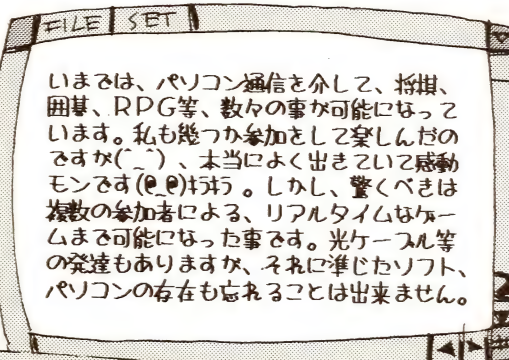 FILE SET
いまでは、パソコン通信を介して、将棋、
囲碁、RPG等、数々の事が可能になって
います。私も幾つか参加をして楽しんだの
ですが(^_^)、本当によく出きていて感動
モンです(@_@)ｷﾗｷﾗ。しかし、驚くべきは
複数の参加者による、リアルタイムなゲー
ムまで可能になった事です。光ケーブル等
の発達もありますが、それに準じたソフト、
パソコンの存在も忘れることは出来ません。